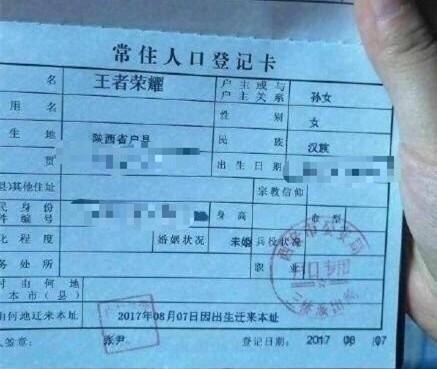 常住人口登记卡
名 王者荣耀 户主或与户主关系 孙女
用名 性别 女
生地 陕西省户县 民族 汉族
贯 出生日期
县)其他住址 宗教信仰
民身份
件编号 身高 血型
化程度 婚姻状况 未婚 兵役状况
务处所 职业
时由何地
本市(县)
由何地迁来本址 2017年08月07日因出生迁来本址
人签章: 登记日期: 2017 08 07